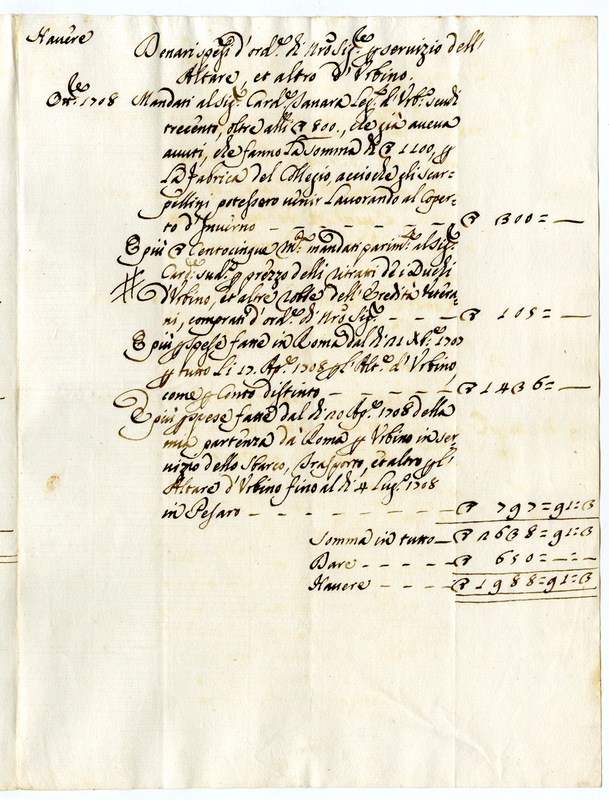 Havere
Denari spesi d'ord.e di N.ro Sig.re p servizio dell'
Altare, et altro d'Urbino.
Ott.re 1708 Mandati al Sig.r Card.e Tanara Leg.o d'Urb.o scudi
trecento, oltre alli ▽ 800., che già aveva
avuti, che fanno la somma di ▽ 1100, p
La fabrica del Colleggio, acciochè gli Scar-
pellini potessero venir Lavorando al Coper-
to d'Inverno - - - - - - ▽ 300=-
E più ▽ Centocinque m.ta mandati parim.te al Sig.r
Card.e sud.o p prezzo delli ritratti de i Duchi
# d'Urbino, et altre robbe dell'Eredità Vetera-
ni, comprati d'ord.e di N.ro Sig.re - - - ▽ 105=-
E più p spese fatte in Roma dal di 21 Xb.re 1707
p tutto li 17. Ag.o 1708 p l'Alt.e d'Urbino
come p Conto distinto - - - - - ▽ 1436=-
E più p spese fatte dal di 20 Ag.o 1708 della
mia partenza da Roma p Urbino in ser-
vizio dello sbarco, Trasporto, et altro p l'
Altare d'Urbino fino al di 4 Lug.o 1708
in Pesaro - - - - - - - ▽ 797=91=3
Somma in tutto - ▽ 2638=91=3
Dare - - - - ▽ 650=-=-
Havere - - - - ▽ 1988=91=3